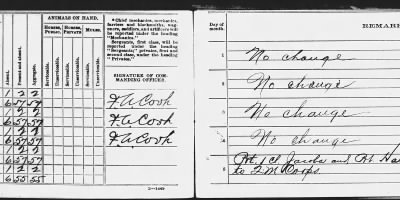 ANIMALS ON HAND.
Absent.
Present and absent.
Aggregate.
HORSES, PUBLIC.
HORSES, PRIVATE
MULES.
Serviceable.
Unserviceable.
Serviceable.
Unserviceable.
Serviceable.
Unserviceable.
¹Chief mechanics, mechanics,
farriers and blacksmiths, wag-
oners, saddlers, and artificers will
be reported under the heading
"Mechanics."
Sergeants, first class, will be
reported under the heading
"Sergeants;" privates, first and
second class, under the heading
"Privates."
SIGNATURE OF COM-
MANDING OFFICER.
1 2 2
6 57 57
1 2 2
6 57 57 F. A Cook
1 2 2
6 57 57 F. A Cook
1 2 2
6 57 57 F. A Cook
1 2 2
6 55 55
Day of
month.
REMARK
1 No change
2 No change
3 No change
4 No change
Pvt. 1 Cl Jacobs and Pvt Ha
5 to Q M Corps.